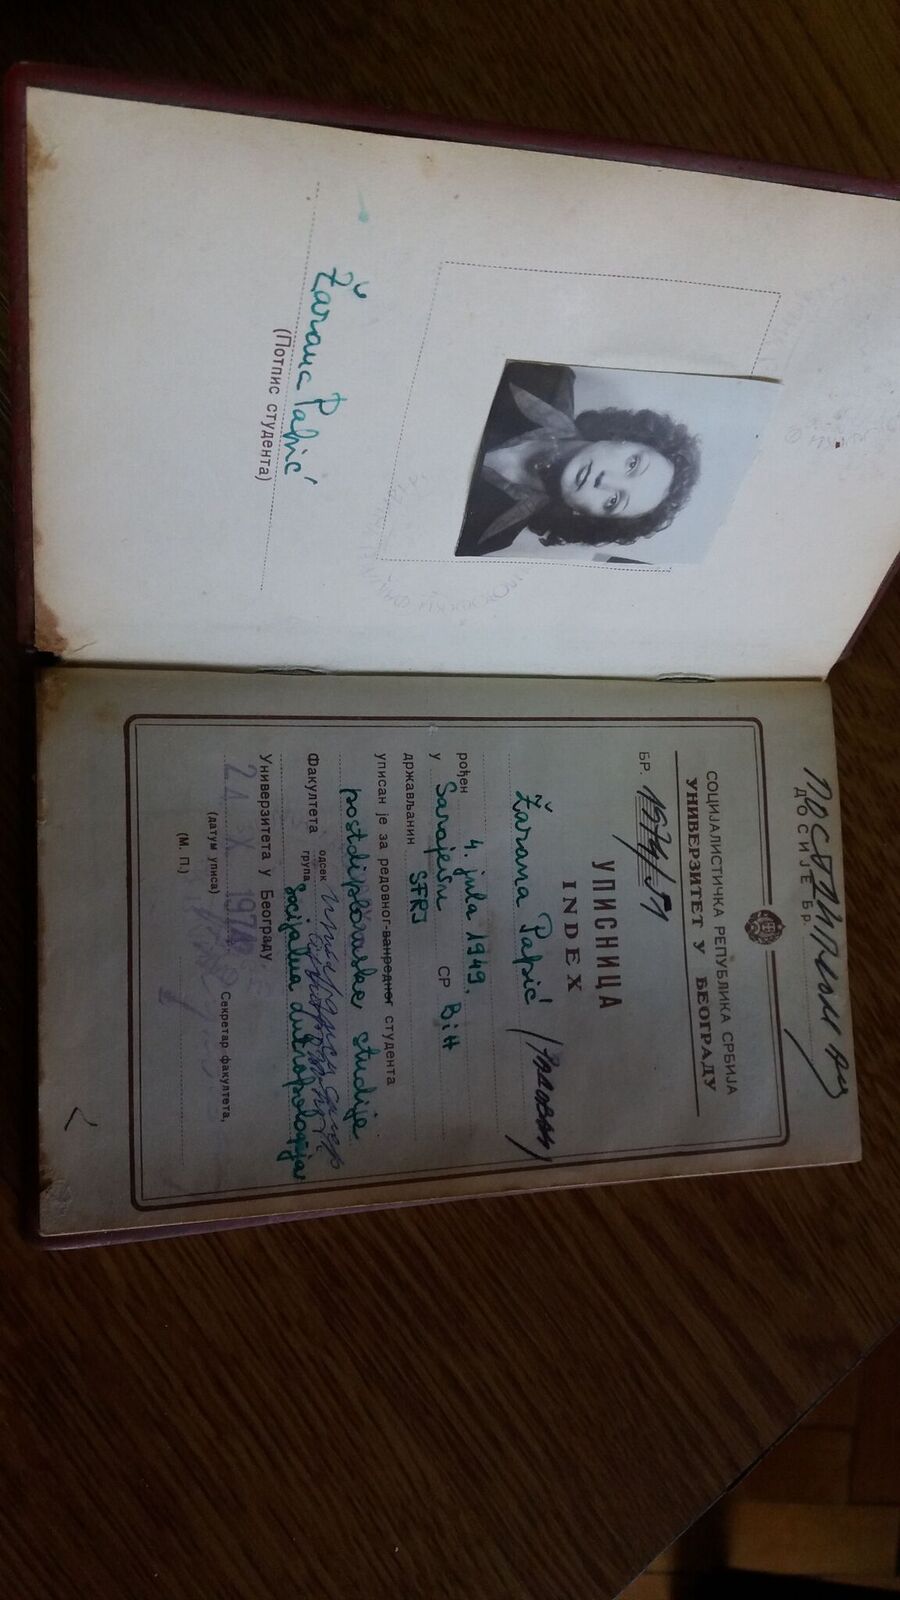 Žarana Papić
(Потпис студента)
ДОСИЈЕ БР.
СОЦИЈАЛИСТИЧКА РЕПУБЛИКА СРБИЈА
УНИВЕРЗИТЕТ У БЕОГРАДУ
БР. 1574/51
УПИСНИЦА
INDEX
Žarana Papić
рођен 4. jula 1949.
у Sarajevu СР BiH
држављанин SFRJ
уписан је за редовног-ванредног студента
postdiplomske studije
Факултета
одсек
група Socijalna antropologija
Универзитета у Београду,
24 IX 197
(датум уписа) Секретар факултета,
(М. П.)